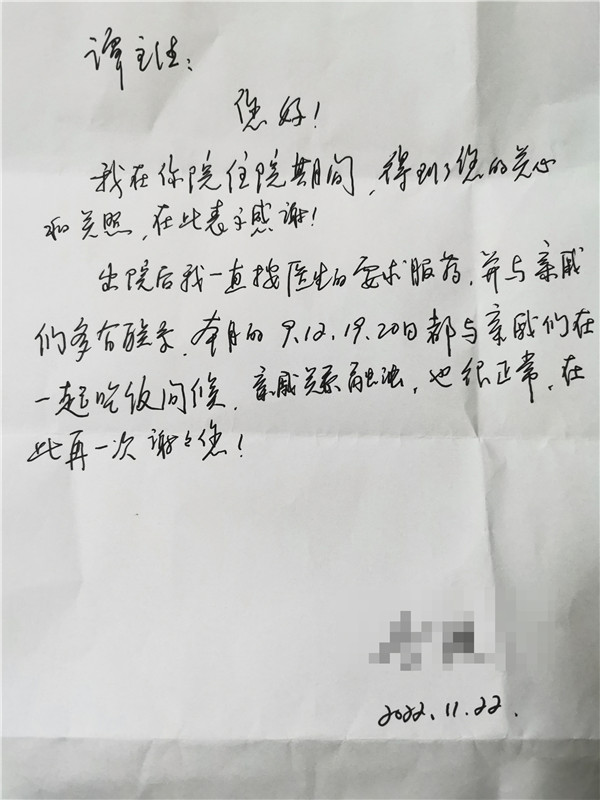 谭主任:
您好!
我在你院住院其间,得到了您的关心
和关照,在此表示感谢!
出院后我一直按医生的要求服药,并与亲戚
们多有联系,本月的9.12.19.20日都与亲戚们在
一起吃饭问候,亲戚关系融洽,也很正常,在
此再一次谢谢您!
2022.11.22.